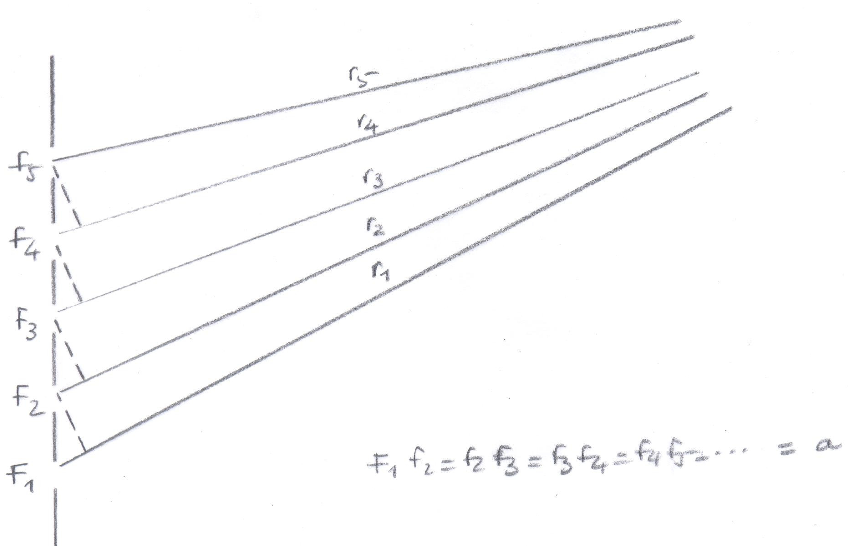 r5
r4
r3
r2
r1
F5
F4
F3
F2
F1
F1 F2 = F2 F3 = F3 F4 = F4 F5 = ... = a